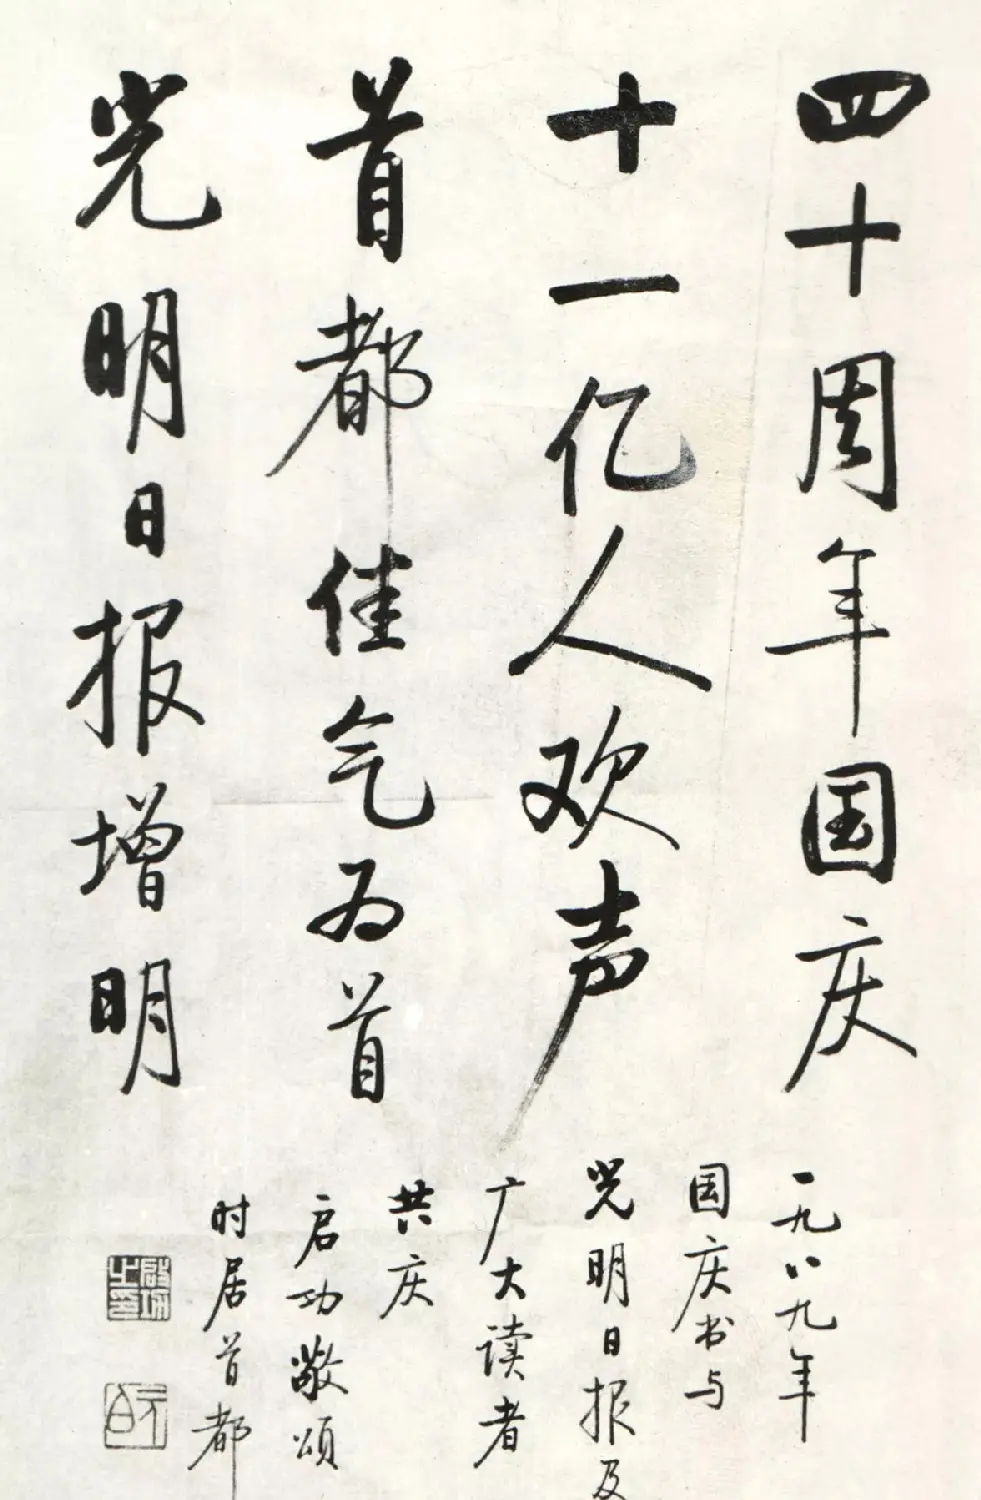 四十周年国庆
十一亿人欢声
首都佳气为首
光明日报增明
一九八九年
国庆书与
光明日报及
广大读者
共庆
启功敬颂
时居首都
启功之印
元白